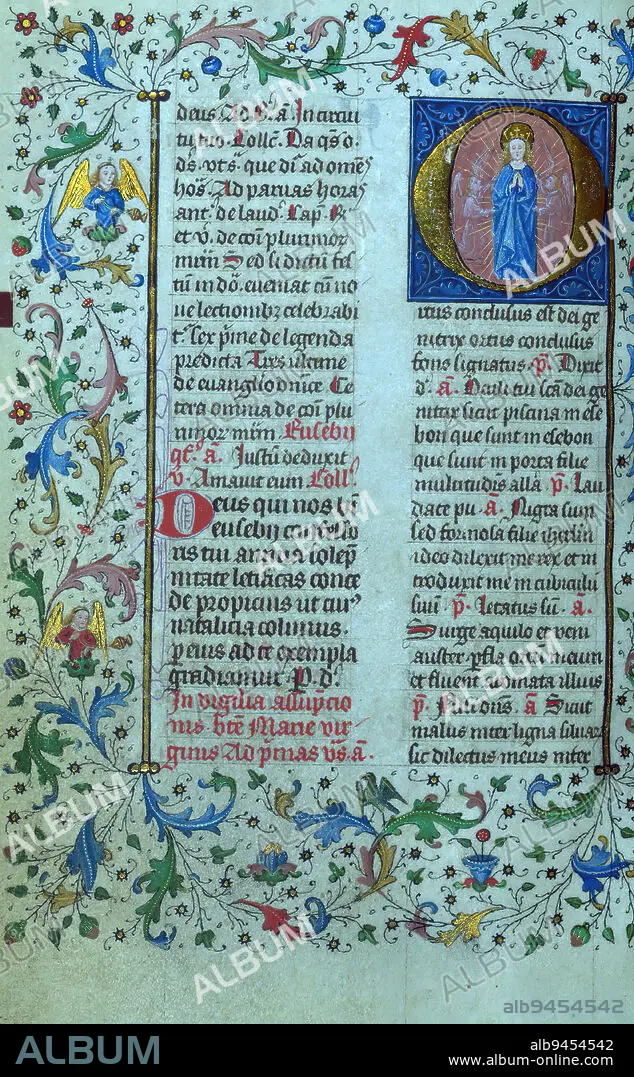 deus Ad B. a. In circui
tu tuo. Collc. Da qs o.
ds. vts que di ad omes
hos. Ad paruas horas
ant. de laud. Cap. R.
et v. de coi plurimor
mrm Sed si dictum fes
tum in do. eueniat cu no
ue lectionibz celebrabi
t. Sex pme de legenda
predicta Tres ultime
de euanglio dnice. Ce
tera omnia de coi plu
rimor mrm Eusebij
a. Justu deduxit
v. Amauit eum Coll.
Deus qui nos bti
eusebij confesso
ris tui annua solep
nitate letificas conce
de propicius ut cui9
natalicia colimus.
per eius ad te exempla
gradiamur. P. d.
In vigilia assupcio
nis bte Marie vir
ginis Ad pmas vs. a.
Ortus conclusus est dei ge
nitrix ortus conclusus
fons signatus. p. Dixit
d. a. Oculi tui sca dei ge
nitrix sicut piscina in ese
bon que sunt in esebon
que sunt in porta filie
multitudis alla p. Lau
date pu. a. Nigra sum
sed formosa filie ihrlm
ideo dilexit me rex et in
troduxit me in cubiculu
suu. p. Letatus su. a.
Surge aquilo et veni
auster pfla ortu meum
et fluent aromata illius
p. Nisi dns. a Sicut
malus inter ligna siluar
sic dilectus meus inter
alb9454542
ALBUM
alb9454542
www.album-online.com